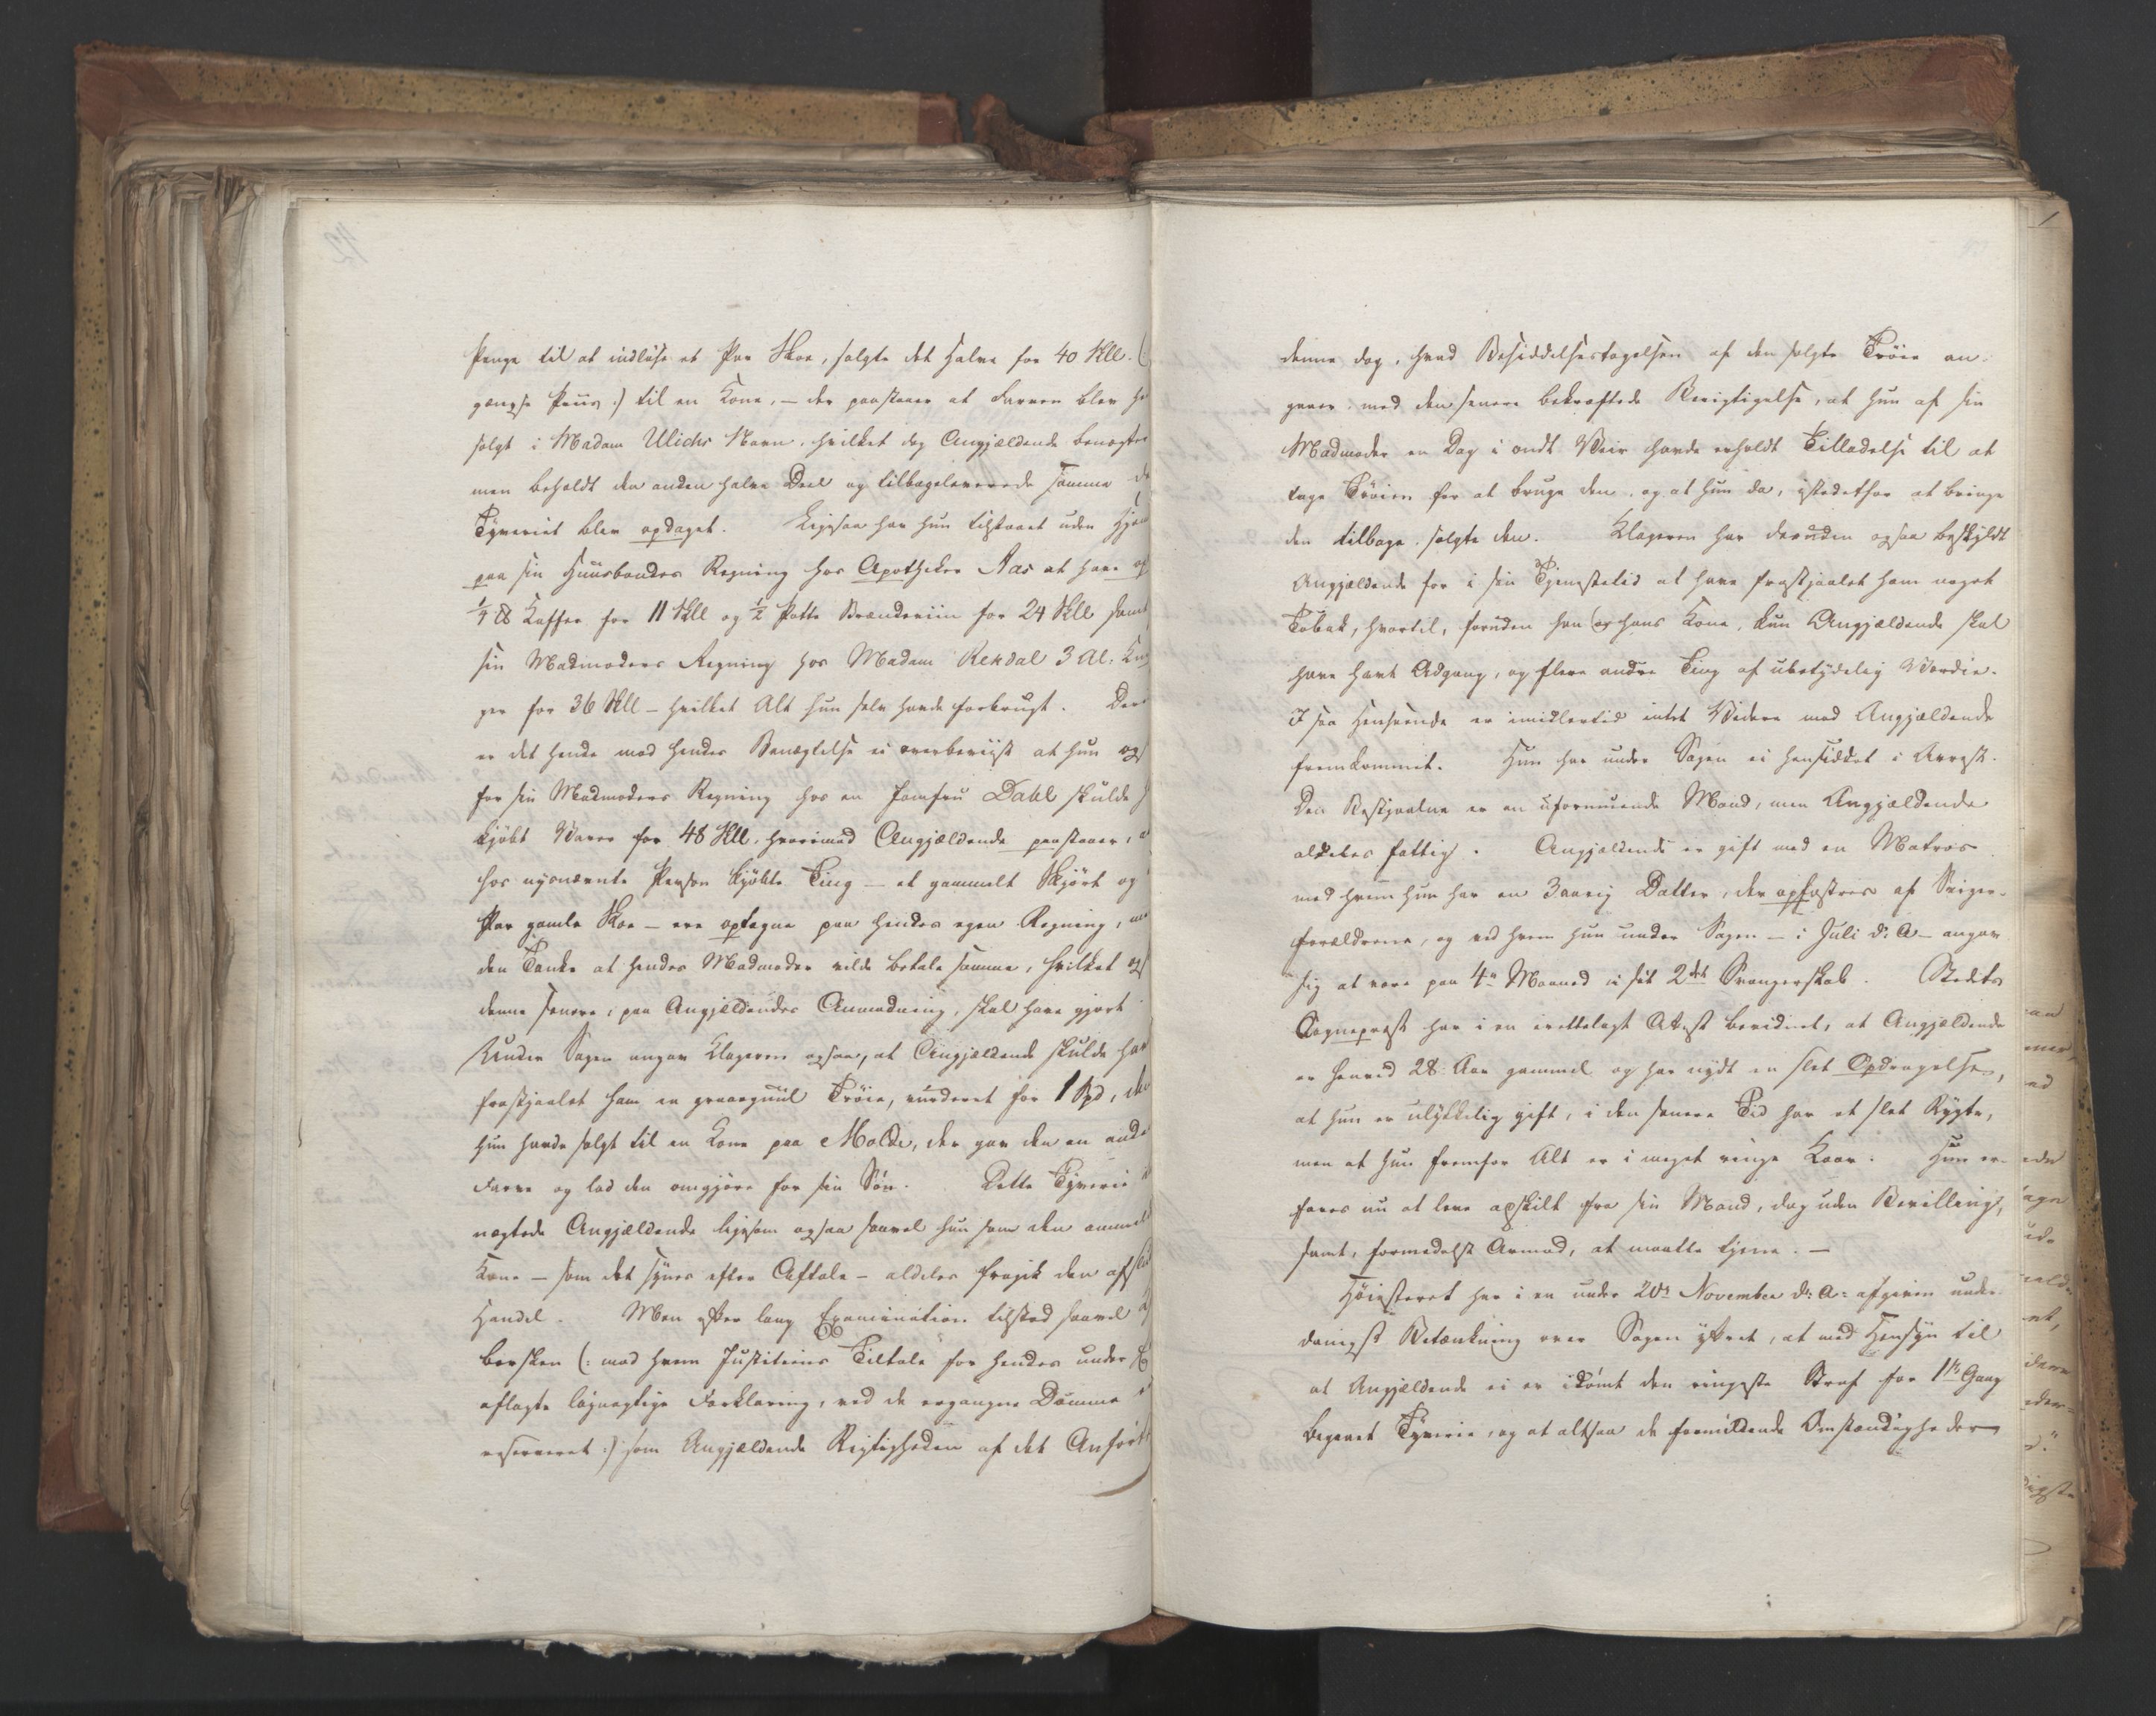 Penge til at indløse et Par Skoe, solgte det Halve for 40 Skll. (:
gængse Priis:) til en Kone, – der paastaaer at Farven blev
solgt i Madam Ulichs Navn, hvilket dog Angjældende benægter
men beholdt den anden halve Deel og tilbageleverede samme
Tyveriet blev opdaget. Ligesaa har hun tilstaaet uden
paa sin Huusbondes Regning hos Apotheker Aas at have
¼ ℔ Kaffee for 11 Skll og ½ Potte Brændeviin for 24 Skll samt
sin Madmoders Regning hos Madam Rekdal 3 Al.
ger for 36 Skll – hvilket Alt hun selv havde forbrugt.
er det hende mod hendes Benægtelse ei overbeviist at hun
for sin Madmoders Regning hos en Jomfru Dahl skulde
kjøbt Varer for 48 Skll, hvorimod Angjældende paastaaer,
hos nysnævnte Person kjøbte Ting – et gammelt Skjört og
Par gamle Skoe – ere optagne paa hendes egen Regning,
den Tanke at hendes Madmoder vilde betale samme, hvilket
denne senere, paa Angjældendes Anmodning, skal have gjort.
Under Sagen angav Klageren ogsaa, at Angjældende skulde
frastjaalet ham en graaeguul Tröie, vurderet for 1 Spd,
hun havde solgt til en Kone paa Molde, der gav den en
Farve og lod den omgjöre for sin Sön. Dette Tyverie
nægtede Angjældende ligesom ogsaa saavel hun som den
Kone – som det synes efter Aftale – aldeles fragik den
Handel. Men efter lang Examination tilstod saavel
bersken (: mod hvem Justitiens Tiltale for hendes under
aflagte løgnagtige Forklaring, ved de ergangne Domme
reserveret :) som Angjældende Rigtigheden af det Anførte
denne dog, hvad Besiddelsestagelsen af den solgte Tröie an-
gaaer, med den senere bekræftede Berigtigelse, at hun af sin
Madmoder en Dag i ondt Veir havde erholdt Tilladelse til at
tage Tröien for at bruge den, og at hun da, istedetfor at bringe
den tilbage, solgte den. Klageren har desuden ogsaa beskyldt
Angjældende for i sin Tjenestetid at have frastjaalet ham noget
Tobak, hvortil, foruden han og hans Kone, kun Angjældende skal
have havt Adgang, og flere andre Ting af ubetydelig Værdie.
I saa Henseende er imidlertid intet Videre mod Angjældende
fremkommet. Hun har under Sagen ei hensiddet i Arrest.
Den Bestjaalne er en uformuende Mand, men Angjældende
aldeles fattig. Angjældende er gift med en Matros
med hvem hun har en 3aarig Datter, der opfostres af Sviger-
forældrene, og ved hvem hun under Sagen – i Juli d: A – angav
sig at være paa 4de Maaned i sit 2det Svangerskab. Stedets
Sognepræst har i en irettelagt Attest bevidnet, at Angjældende
er henved 28 Aar gammel og har nydt en slet Opdragelse,
at hun er ulykkelig gift, i den senere Tid har et slet Rygte,
men at hun fremfor Alt er i meget ringe Kaar. Hun er-
fares nu at leve adskilt fra sin Mand, dog uden Bevilling,
samt, formedelst Armod, at maatte tjene. –
Høiesteret har i en under 20de November d: A: afgiven under-
danigst Betænkning over Sagen yttret, at med Hensyn til
at Angjældende ei er idömt den ringeste Straf for 1ste Gang
begaaet Tyverie, og at altsaa de formildende Omstændigheder